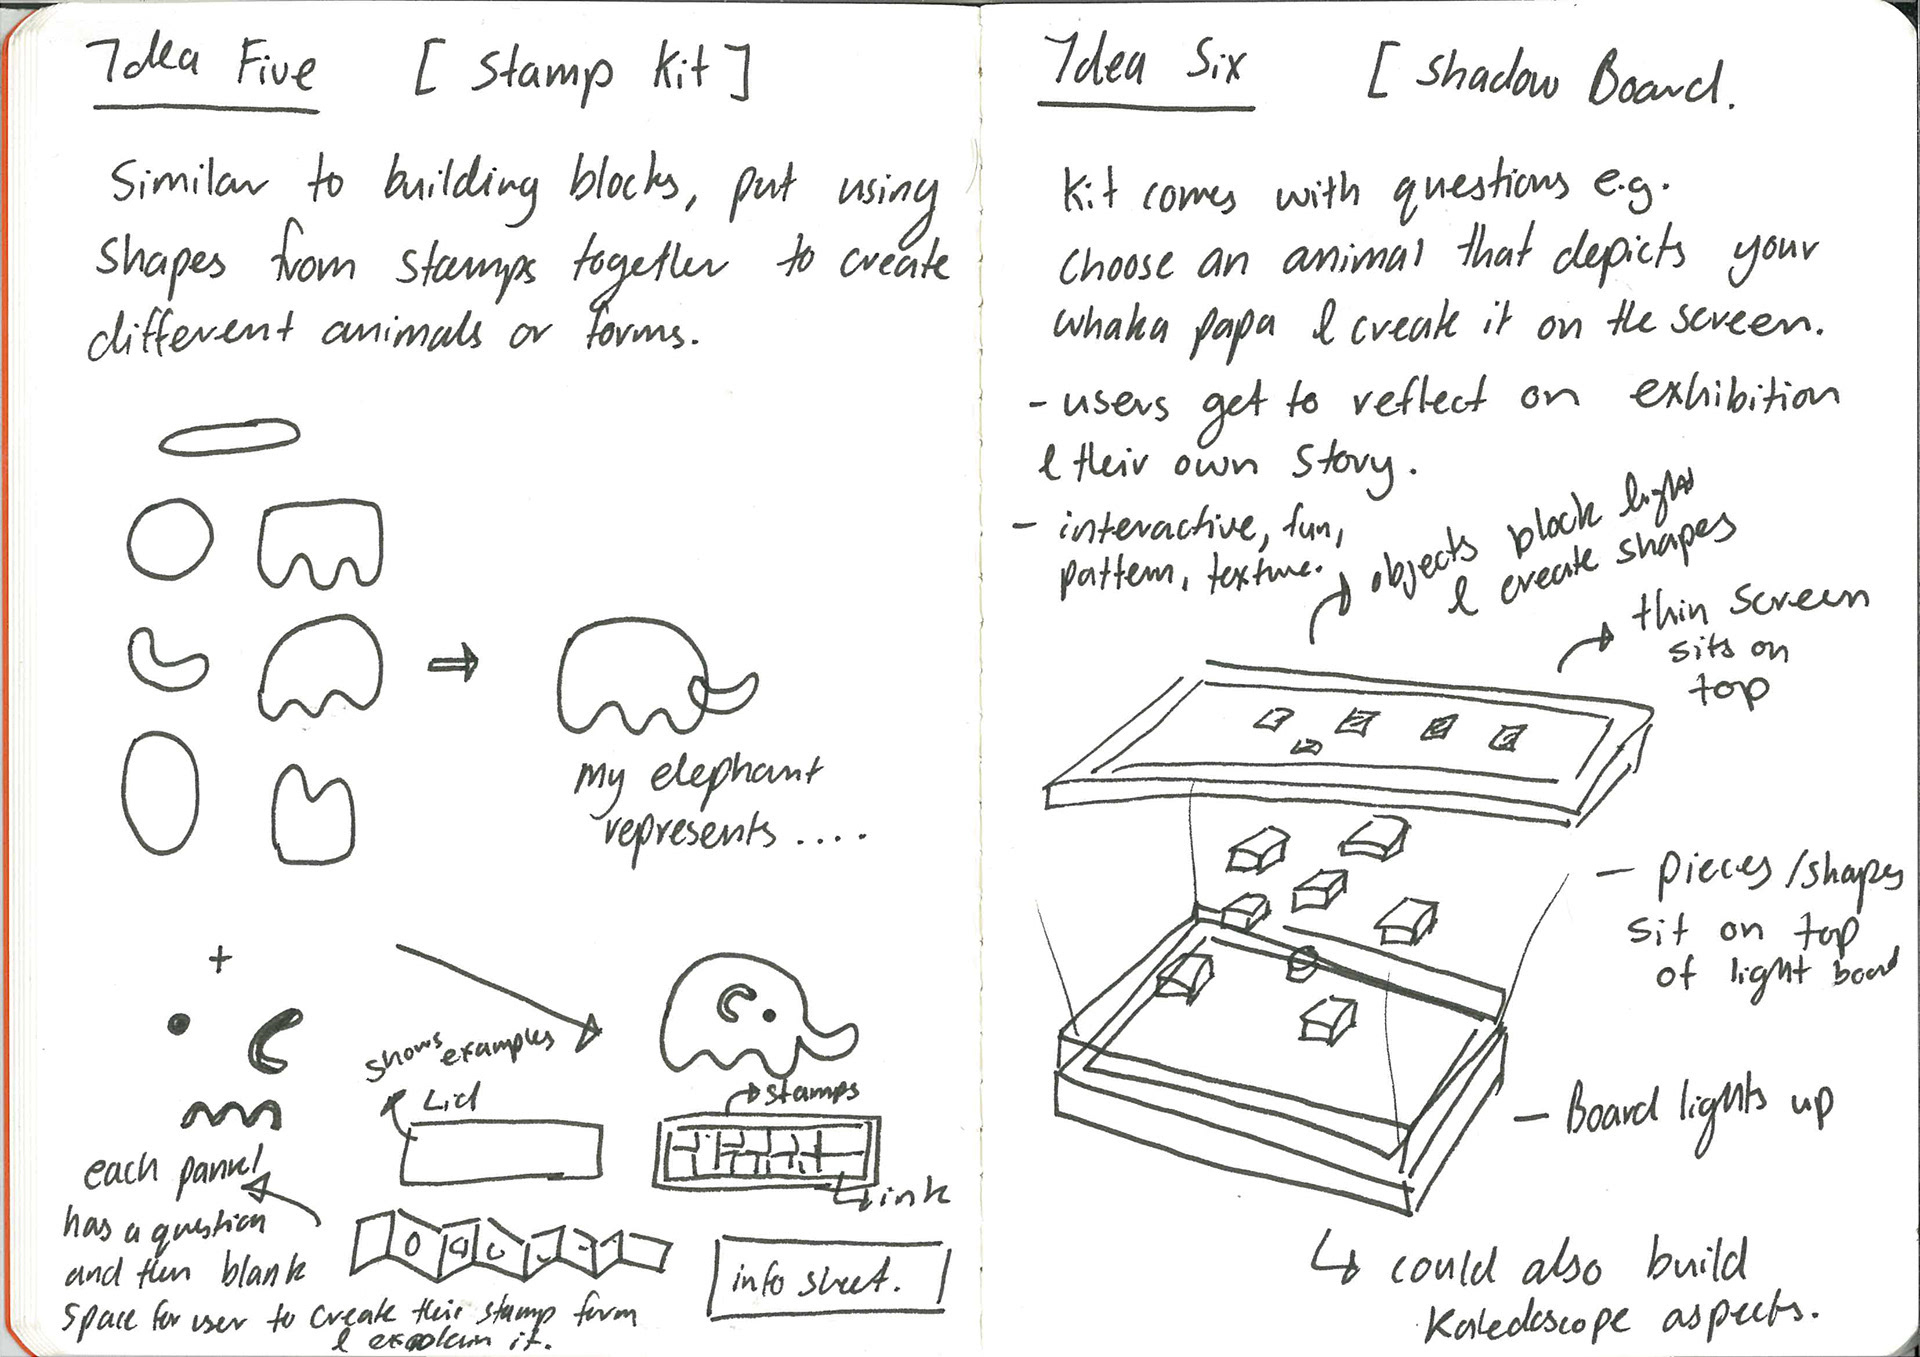 Idea Five [ Stamp Kit ]
Similar to building blocks, put using
shapes from stamps together to create
different animals or forms.
my elephant
represents ....
+
shows examples
Lid
stamps
ink
each pannel
has a question
and then blank
space for user to create their stamp form
& explain it.
info sheet.
Idea Six [ Shadow Board.
Kit comes with questions e.g.
choose an animal that depicts your
whaka papa & create it on the screen.
- users get to reflect on exhibition
& their own story.
- interactive, fun,
pattern, texture.
objects block light
& create shapes
thin screen
sits on
top
- pieces/shapes
sit on top
of light board
- Board lights up
could also build
Kaledoscope aspects.